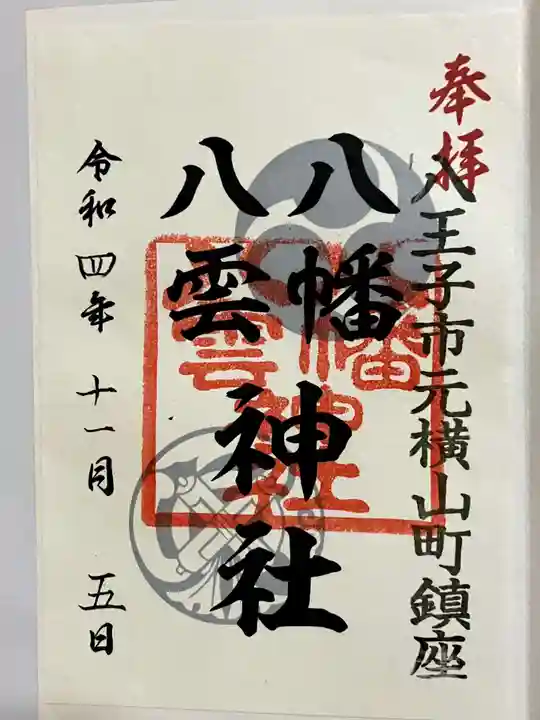 奉拝
八王子市元横山町鎮座
八幡
八雲
神社
令和四年十一月五日